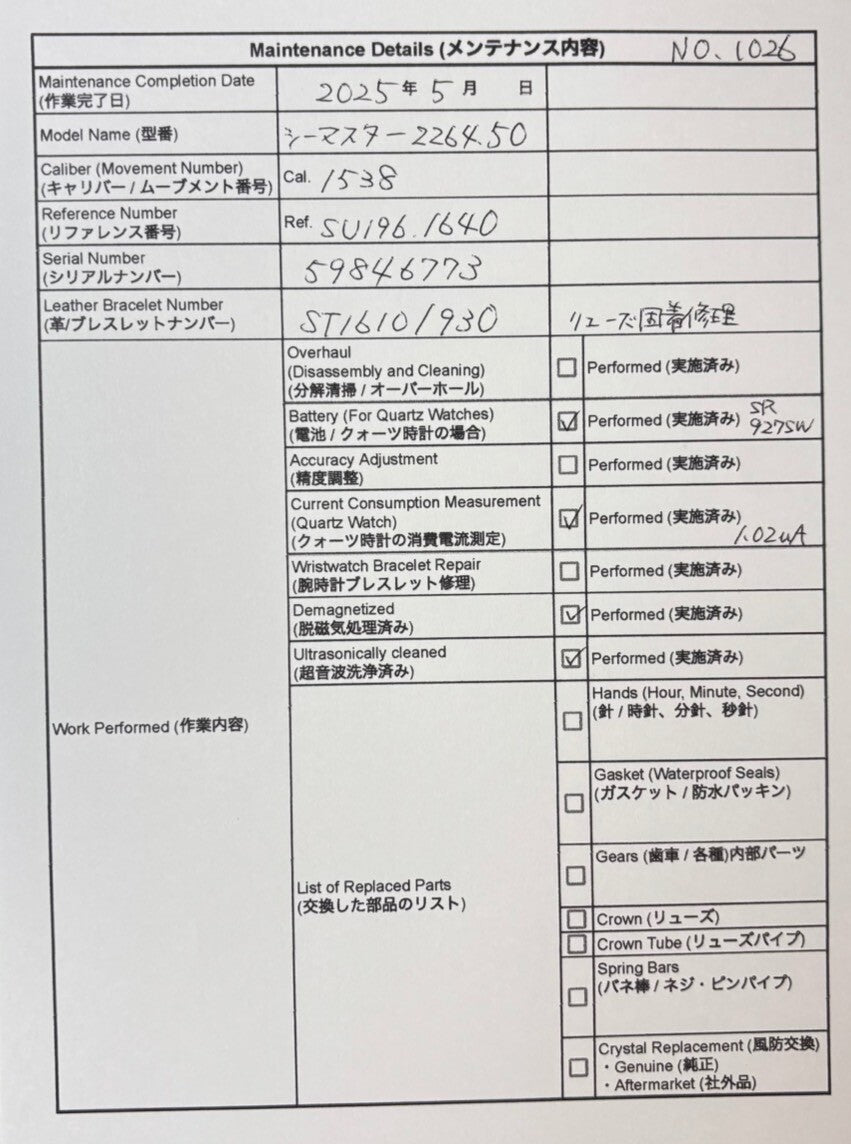 Maintenance Details (メンテナンス内容) NO. 1026
Maintenance Completion Date
(作業完了日)
2025年 5月 日
Model Name (型番)
シーマスター2264.50
Caliber (Movement Number)
(キャリバー / ムーブメント番号)
Cal. 1538
Reference Number
(リファレンス番号)
Ref. SU196.1640
Serial Number
(シリアルナンバー)
59846773
Leather Bracelet Number
(革/ブレスレットナンバー)
ST1610/930
リューズ固着修理
Work Performed (作業内容)
Overhaul
(Disassembly and Cleaning)
(分解清掃 / オーバーホール)
Performed (実施済み)
Battery (For Quartz Watches)
(電池 / クォーツ時計の場合)
Performed (実施済み) SR
927SW
Accuracy Adjustment
(精度調整)
Performed (実施済み)
Current Consumption Measurement
(Quartz Watch)
(クォーツ時計の消費電流測定)
Performed (実施済み)
1.02uA
Wristwatch Bracelet Repair
(腕時計ブレスレット修理)
Performed (実施済み)
Demagnetized
(脱磁気処理済み)
Performed (実施済み)
Ultrasonically cleaned
(超音波洗浄済み)
Performed (実施済み)
List of Replaced Parts
(交換した部品のリスト)
Hands (Hour, Minute, Second)
(針 / 時針、分針、秒針)
Gasket (Waterproof Seals)
(ガスケット / 防水パッキン)
Gears (歯車 / 各種)内部パーツ
Crown (リューズ)
Crown Tube (リューズパイプ)
Spring Bars
(バネ棒 / ネジ・ピンパイプ)
Crystal Replacement (風防交換)
・Genuine (純正)
・Aftermarket (社外品)